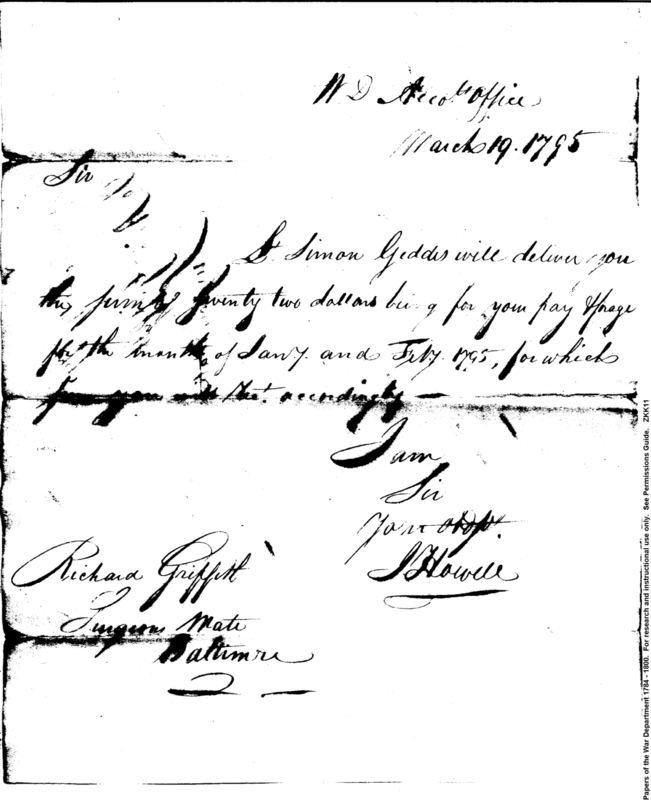 W D Accots Office
March 19. 1795
Sir
Lt Simon Geddis will deliver you
the sum of Seventy two dollars being for your pay & forage
for the months of Jany and Feby 1795, for which
you will accordingly
I am
Sir
Your obdt
J Howell
Richard Griffith
Surgeons Mate
Baltimore
Papers of the War Department 1784 - 1800. For research and instructional use only. See Permissions Guide. ZKK11